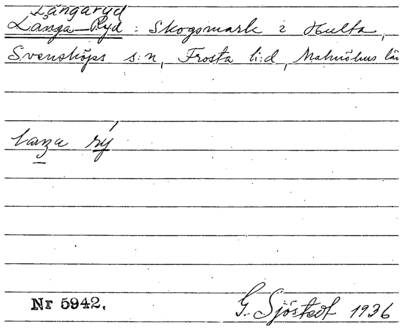 Långaryd
Långa-Ryd: Skogsmark i Hulta,
Svensköps s:n, Frosta h:d, Malmöhus län
laŋa rý
Nr 5942.
G. Sjöstedt 1936